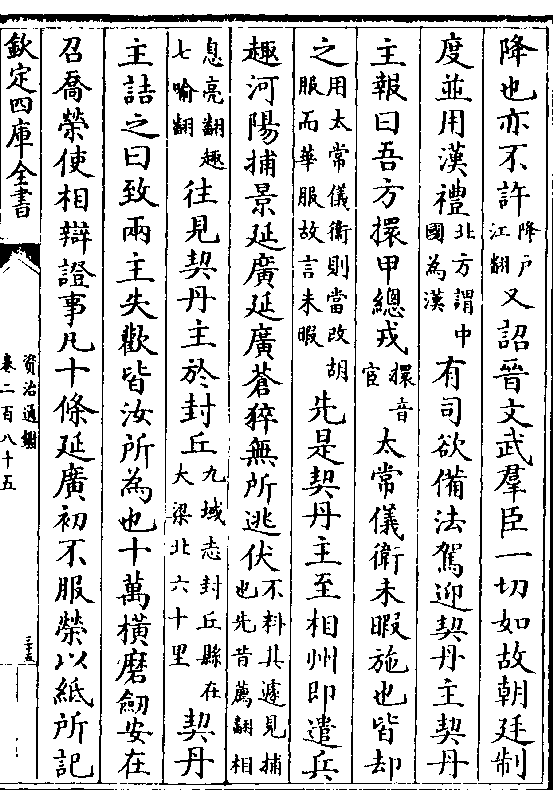 降也亦不許降户江翻又詔晉文武羣臣一切如故朝廷制
度並用漢禮北方謂中國為漢有司欲備法駕迎契丹主契丹
主報曰吾方擐甲總戎擐音宦太常儀衛未暇施也皆却
之用太常儀衛則當改胡服而華服故言未暇先是契丹主至相州即遣兵
趣河陽捕景延廣延廣蒼猝無所逃伏不料其遽見捕也先昔薦翻相
息亮翻趣七喻翻往見契丹主於封丘九域志封丘縣在大梁北六十里契丹
主詰之曰致兩主失歡皆汝所為也十萬橫磨劒安在
召喬榮使相辯證事凡十條延廣初不服榮以紙所記
欽定四庫全書
資治通鑑
卷二百八十五
三十五